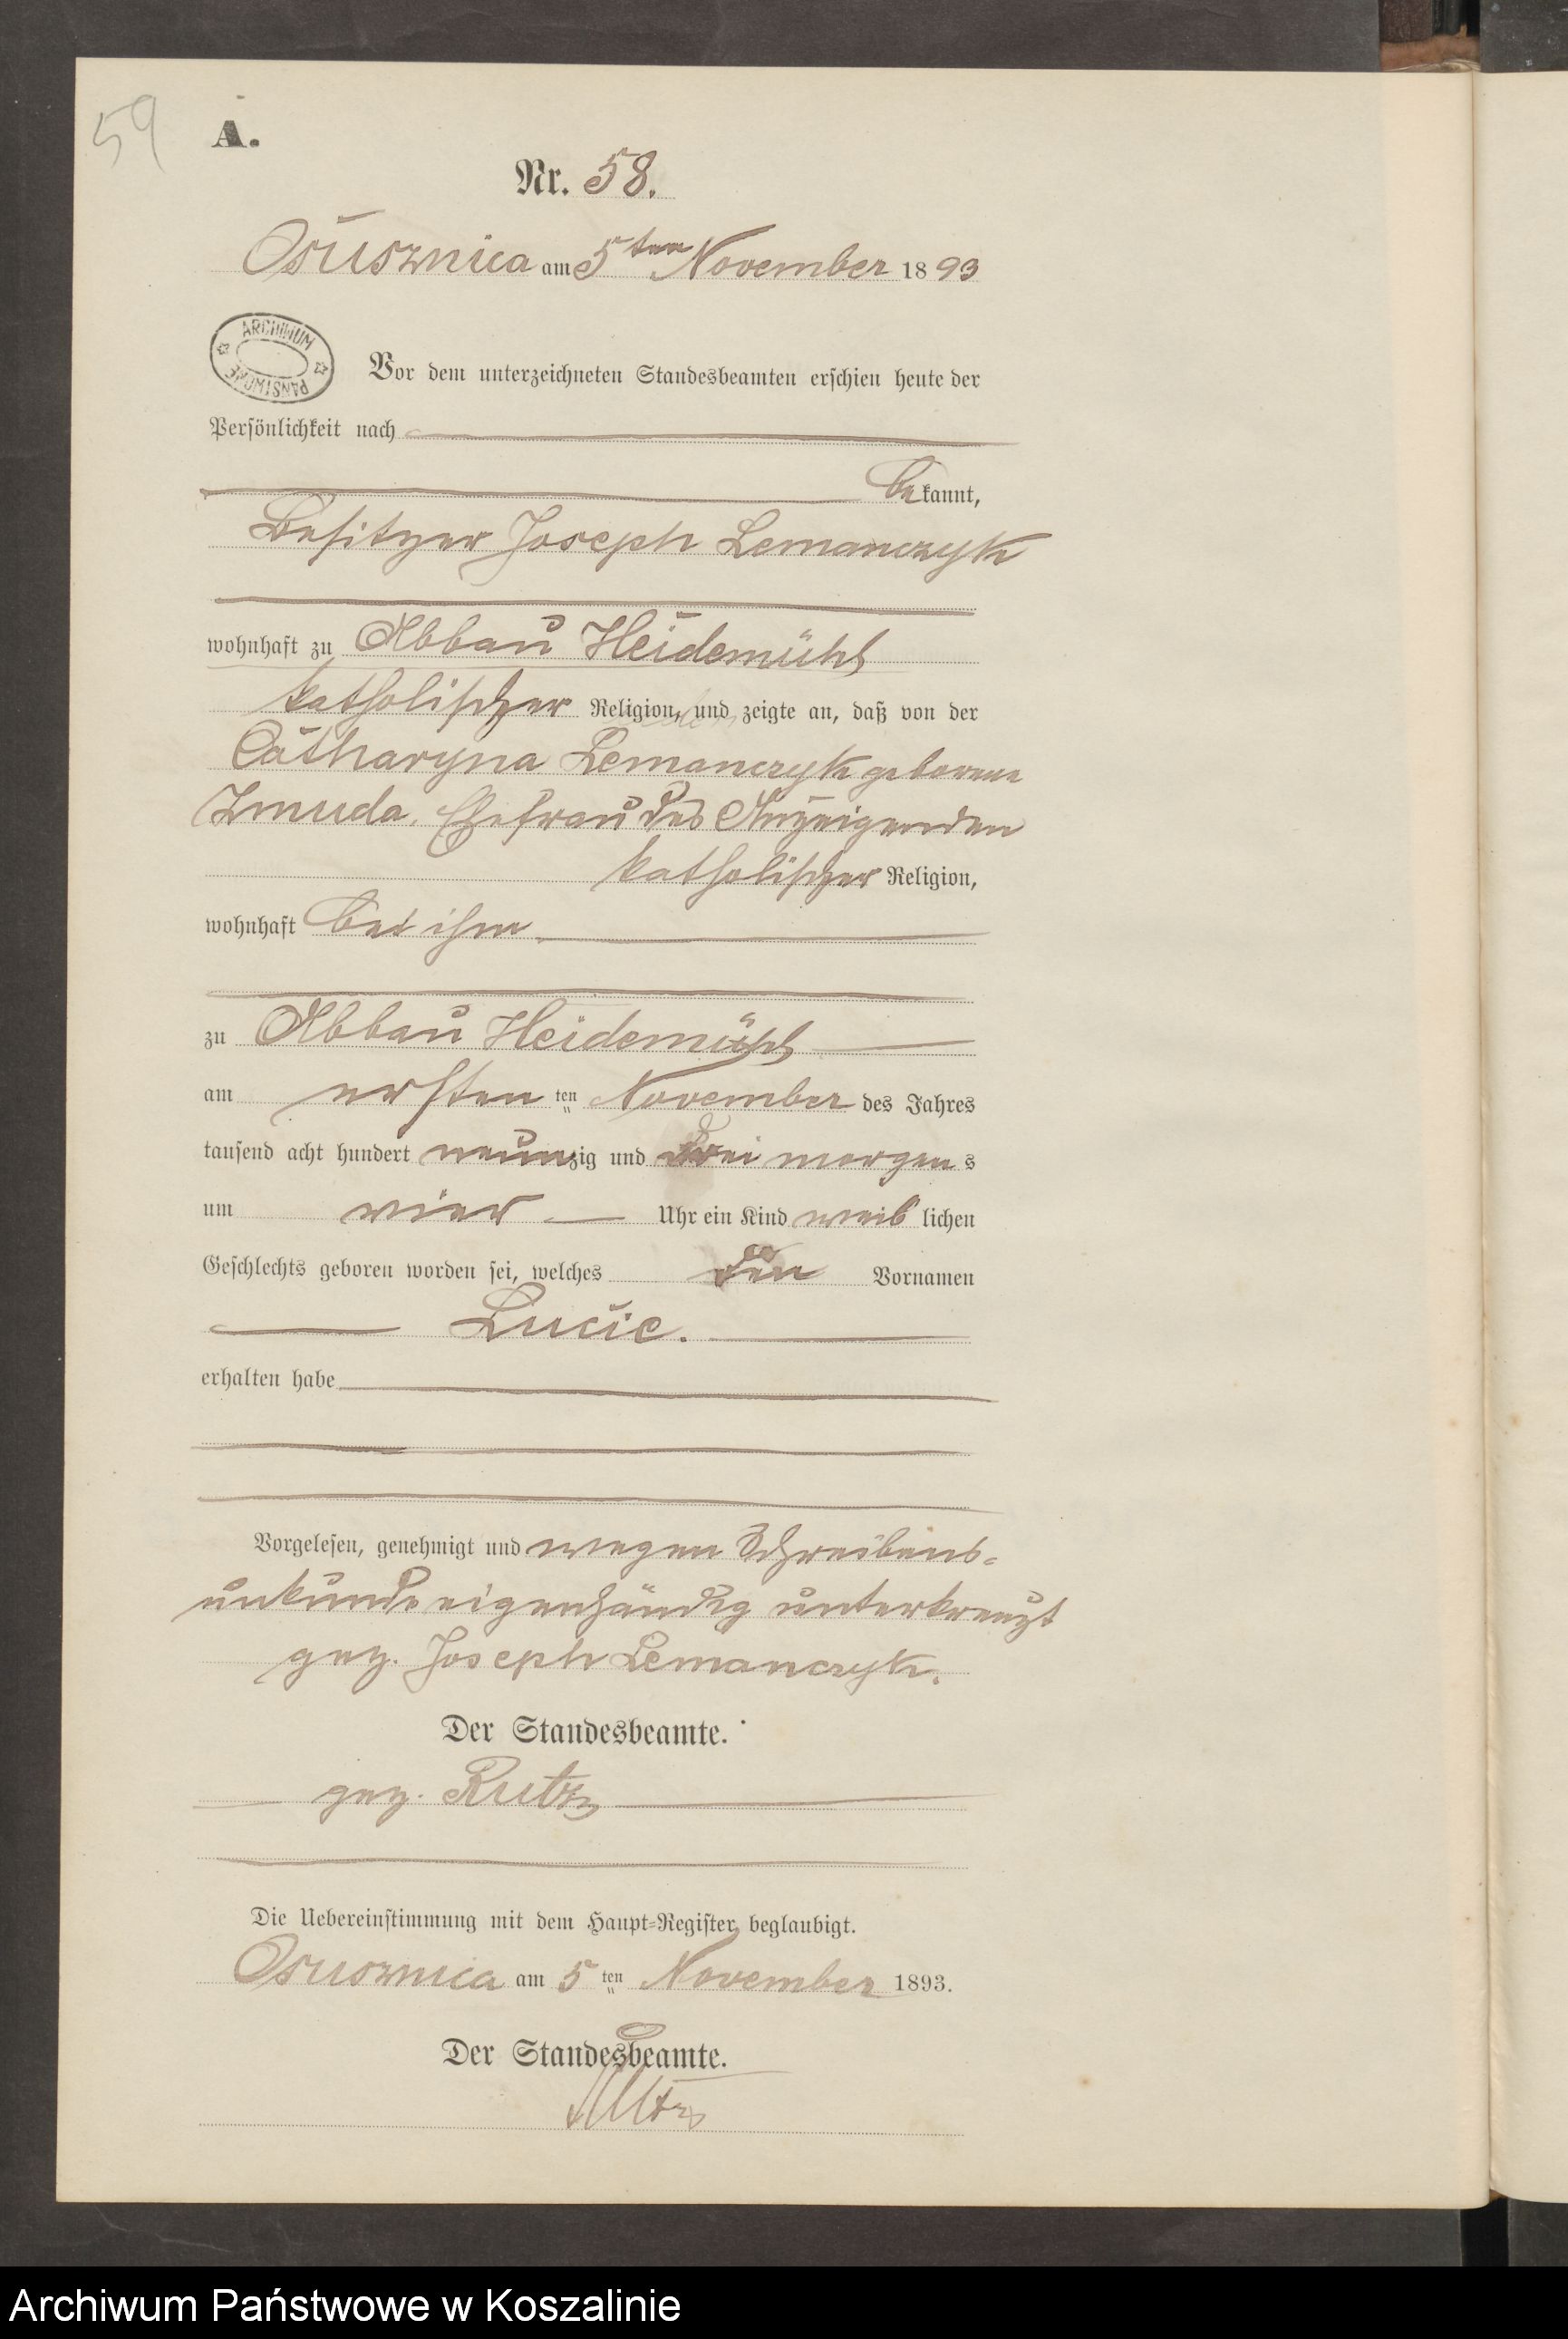 59
A.
Nr. 58.
Osusznica am 5ten November 1893
ARCHIWUM PAŃSTWOWE
Vor dem unterzeichneten Standesbeamten erschien heute der
Persönlichkeit nach
bekannt,
Besitzer Joseph Lemanczyk
wohnhaft zu Abbau Heidemühl
katholischer Religion, und zeigte an, daß von der
Catharyna Lemanczyk geborene
Zmuda, Ehefrau des Anzeigenden
katholischer Religion,
wohnhaft bei ihm
zu Abbau Heidemühl
am ersten ten November des Jahres
tausend acht hundert neunzig und drei morgens
um vier Uhr ein Kind weiblichen
Geschlechts geboren worden sei, welches den Vornamen
Lucie.
erhalten habe
Vorgelesen, genehmigt und wegen Schreibens-
unkunde eigenhändig unterkreuzt
gez. Joseph Lemanczyk.
Der Standesbeamte.
gez. Rutz
Die Uebereinstimmung mit dem Haupt-Register beglaubigt.
Osusznica am 5ten November 1893.
Der Standesbeamte.
Rutz
Archiwum Państwowe w Koszalinie